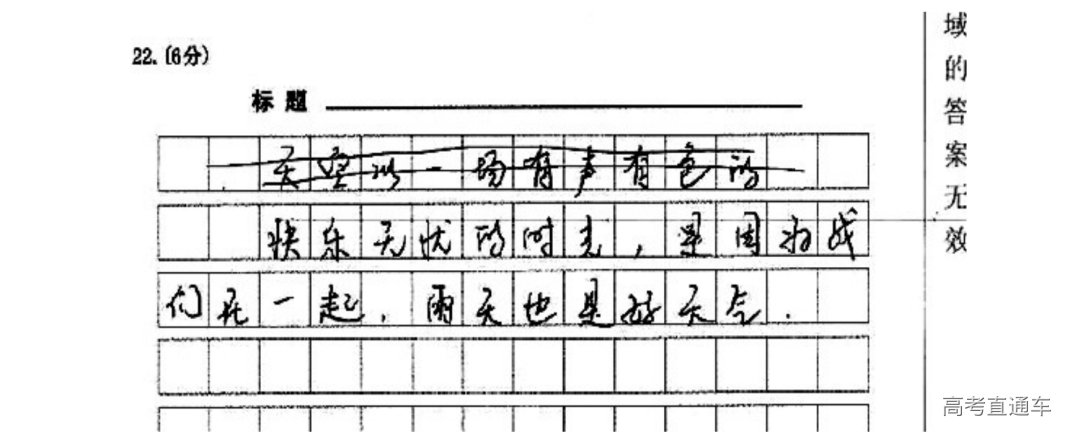 22.(6分)
标题
天空以一场有声有色的
快乐无忧的时光,是因为我
们在一起,雨天也是好天气.
域的答案无效
高考直通车